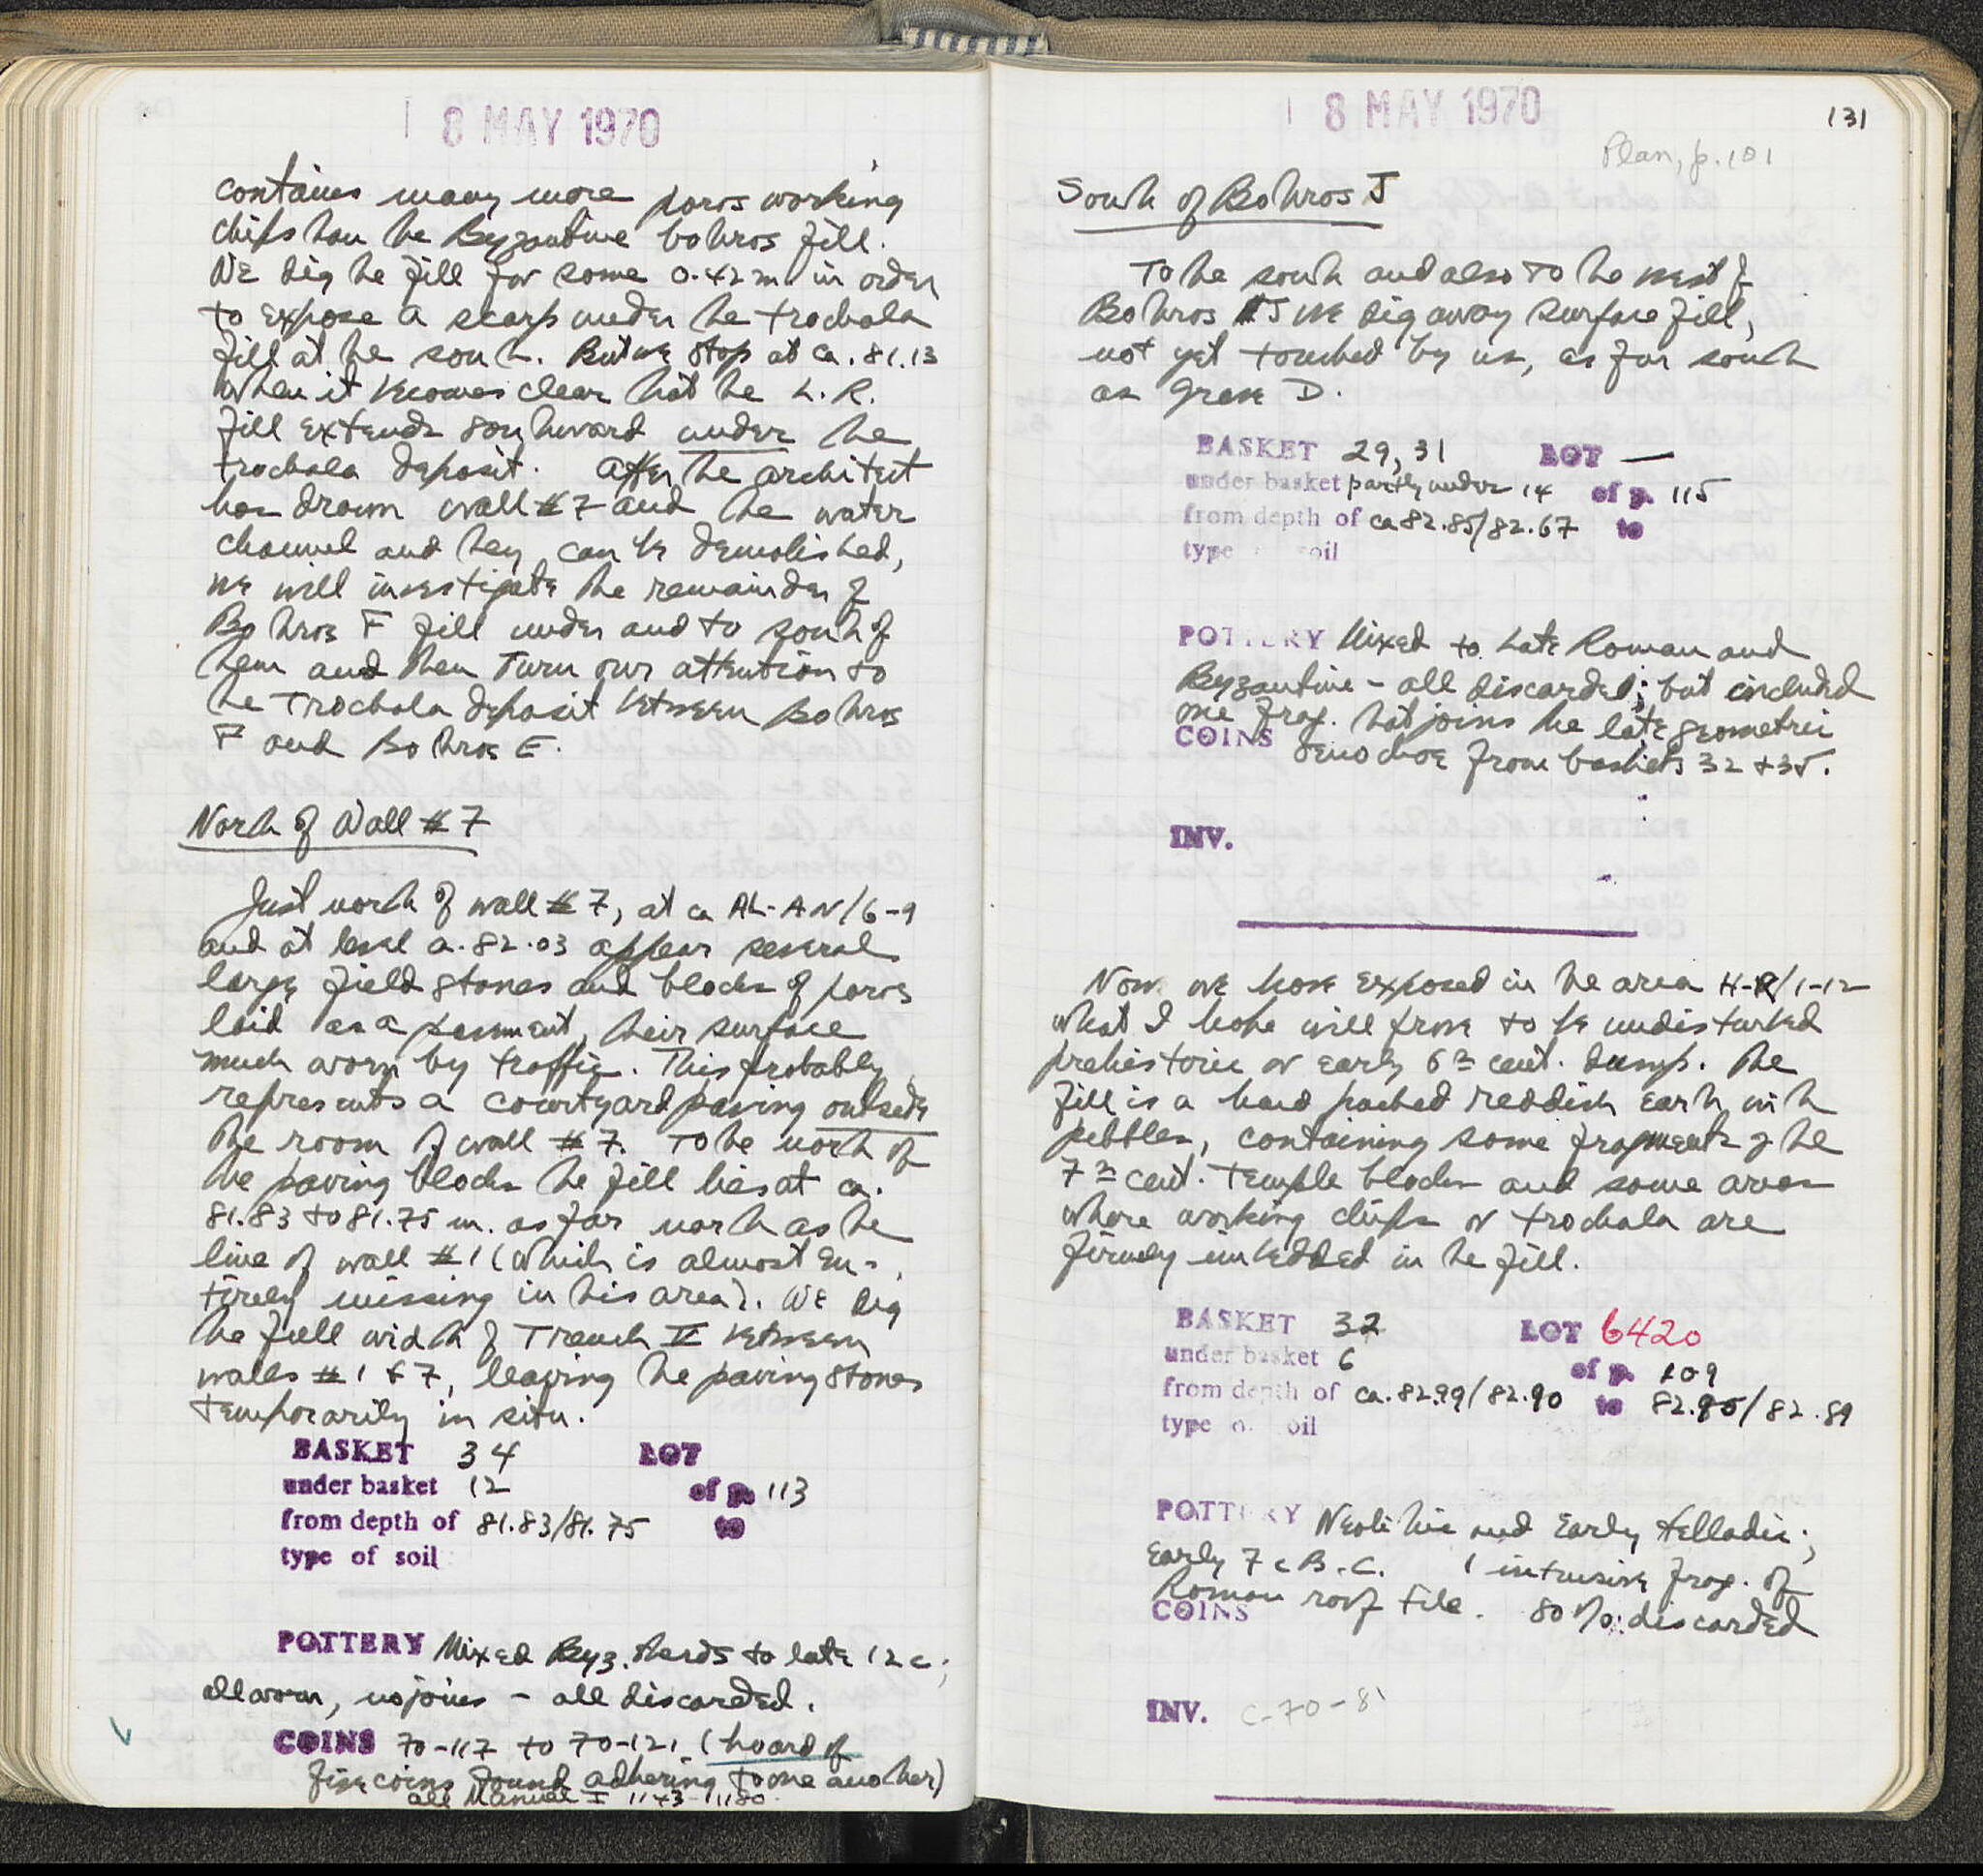 18 MAY 1970
contains many more poros working
chips than the Byzantine bothros fill.
We dig the fill for some 0.42 m. in order
to expose a scarp under the trochala
fill at the south. But we stop at ca. 81.13
when it becomes clear that the L. R.
fill extends southward under the
trochala deposit. After the architect
has drawn wall #7 and the water
channel and they can be demolished,
we will investigate the remainder of
Bothros F fill under and to south of
them and then turn our attention to
the trochala deposit between Bothros
F and Bothros E.
North of Wall #7
Just north of wall #7, at ca AL-AN/6-9
and at level a. 82.03 appear several
large field stones and blocks of poros
laid as a pavement, their surface
much worn by traffic. This probably
represents a courtyard paving outside
the room of wall #7. To the north of
the paving blocks the fill lies at ca.
81.83 to 81.75 m. as far north as the
line of wall #1 (which is almost en-
tirely missing in this area). We dig
the full width of Trench II between
walls #1 & 7, leaving the paving stones
temporarily in situ.
BASKET 34 LOT
under basket 12 of p. 113
from depth of 81.83/81.75 to
type of soil
POTTERY Mixed Byz. sherds to late 12 c;
all worn, no joins - all discarded.
COINS 70-117 to 70-121 (hoard of
five coins found adhering to one another)
all Manuel I 1143-1180.
18 MAY 1970
131
Plan, p. 101
South of Bothros J
To the south and also to the west of
Bothros J we dig away surface fill,
not yet touched by us, as far south
as grave D.
BASKET 29, 31 LOT —
under basket partly under 14 of p. 115
from depth of ca 82.85/82.67 to
type soil
POTTERY Mixed to Late Roman and
Byzantine - all discarded; but included
one frag. that joins the late geometric
COINS oenochoe from baskets 32 + 35.
INV.
Now we have exposed in the area H-R/1-12
what I hope will prove to be undisturbed
prehistoric or early 6th cent. dump. The
fill is a hard packed reddish earth with
pebbles, containing some fragments of the
7th cent. temple blocks and some areas
where working chips or trochala are
firmly imbedded in the fill.
BASKET 32 LOT 6420
under basket 6 of p. 109
from depth of ca. 82.99/82.90 to 82.90/82.89
type of soil
POTTERY Neolithic and Early Helladic;
early 7 c B.C. 1 intrusive frag. of
Roman roof tile. 80% discarded
COINS
INV. C-70-81